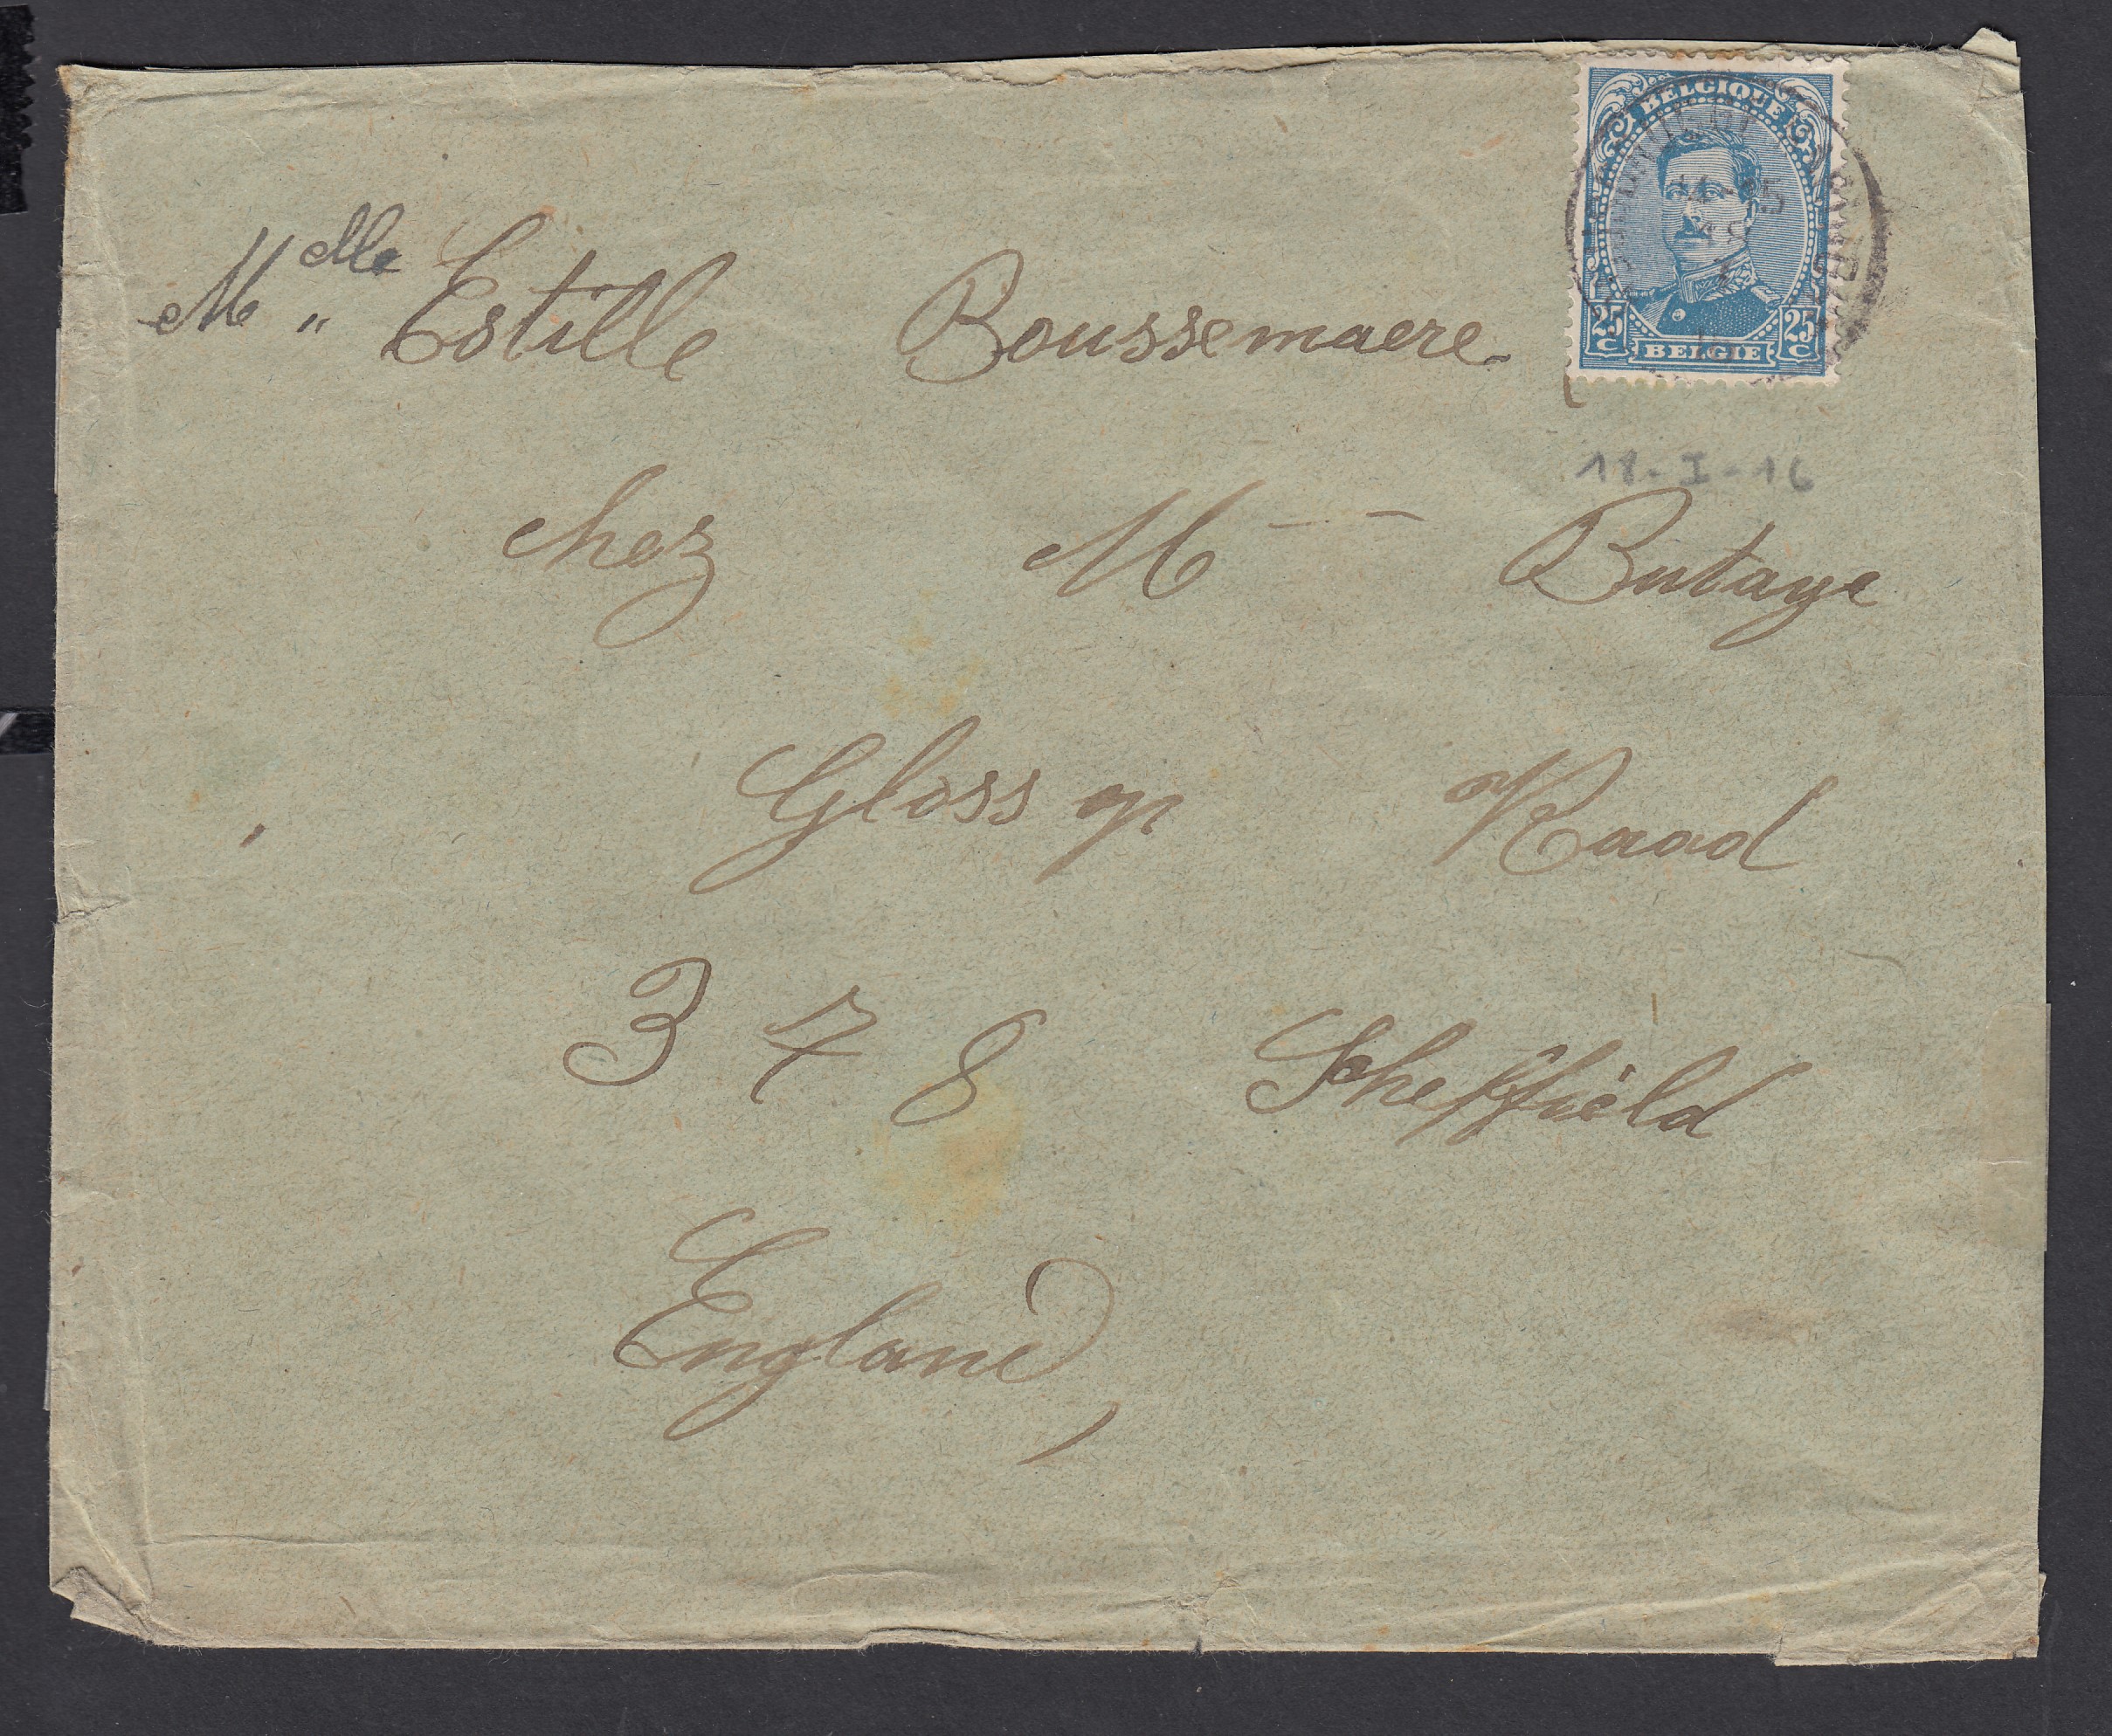 BELGIQUE
25 C 25 C
BELGIE
Melle Estille Boussemaere
18-I-16
chez M Butaye
Glossop Raod
378 Scheffield
England